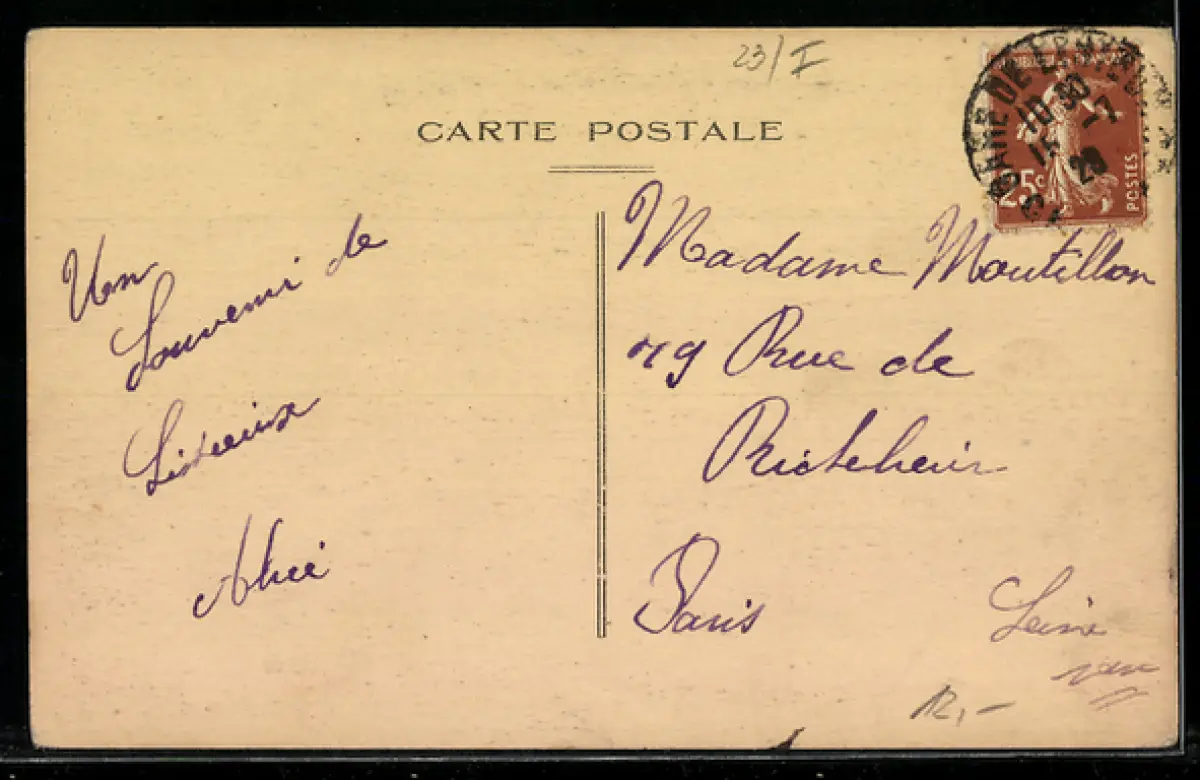 23/I
CARTE POSTALE
GARE DE
10 30
15 -7
29
25c
POSTES
Un
Souvenir de
Lisieux
Alice
Madame Moutillon
49 Rue de
Richelieu
Paris
Seine
12,-